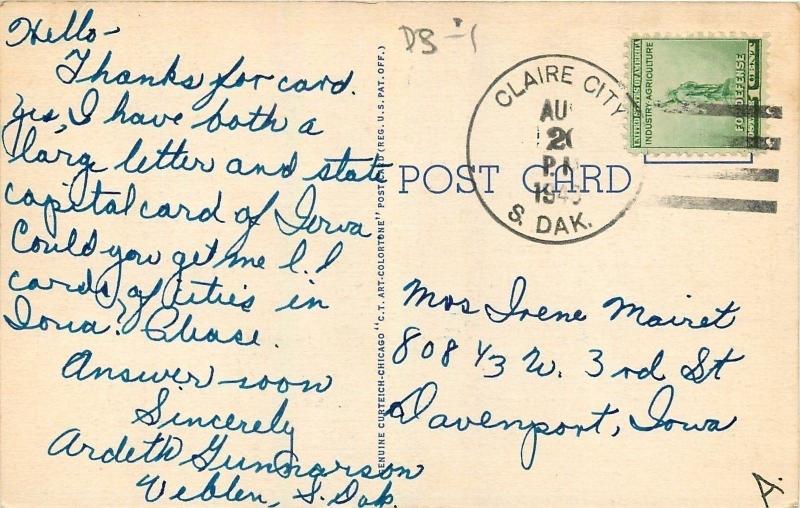 Hello-
Thanks for card.
Yes, I have both a
large letter and state
capital card of Iowa
Could you get me l.l
cards of cities in
Iowa? Please.
Answer soon
Sincerely
Ardeth Gunnarson
Veblen, S. Dak.
GENUINE CURTEICH-CHICAGO "C.T. ART-COLORTONE" POST CARD (REG. U.S. PAT. OFF.)
DB-1
CLAIRE CITY
AU
20
P.M
194
S. DAK.
UNITED STATES OF AMERICA
INDUSTRY-AGRICULTURE
FOR DEFENSE
CENT
POST CARD
Mrs Irene Mairet
808 1/3 W. 3rd St
Davenport, Iowa
A.